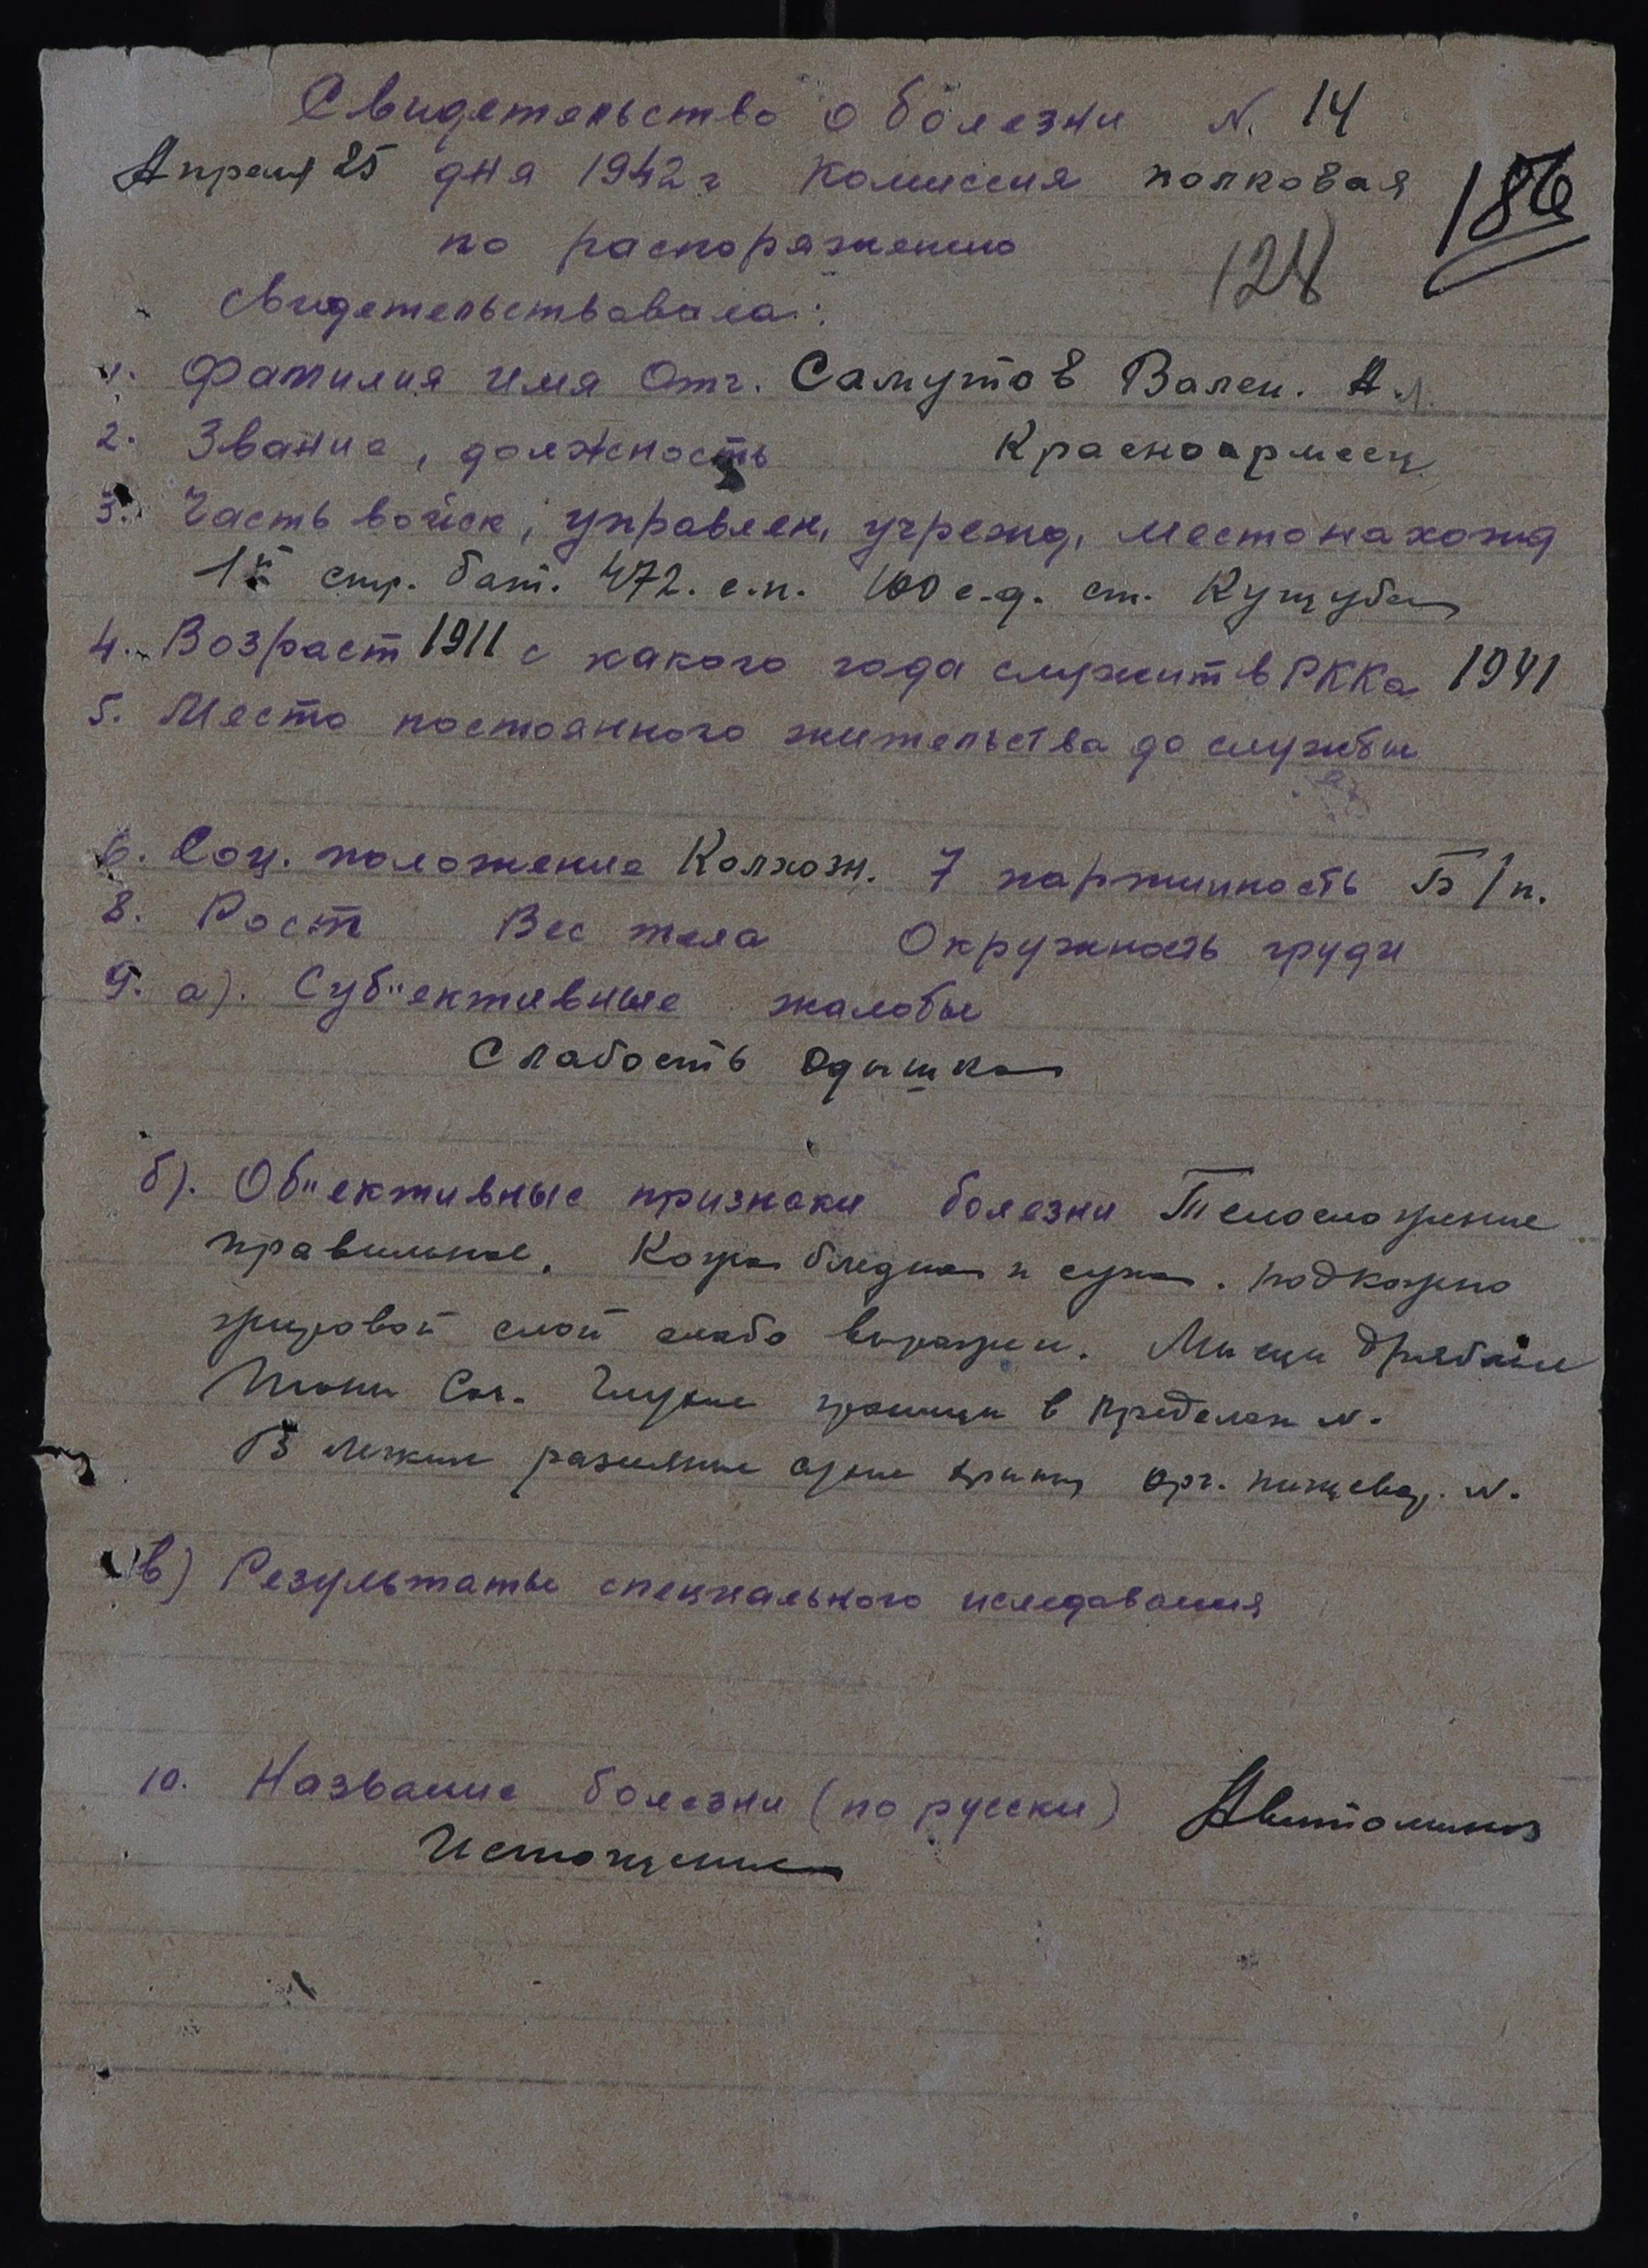 Свидетельство о болезни N. 14
Апреля 25 дня 1942 г Комиссия полковая
186
по распоряжению
128
свидетельствовала:
1. Фамилия Имя Отч. Самутов Вален. Ал.
2. Звание, должность Красноармеец
3. Часть войск, управлен, учрежд, местонахожд
1й стр. бат. 472. с.п. 100 с.д. ст. Кущуба
4. Возраст 1911 с какого года служит в РККА 1941
5. Место постоянного жительства до службы
6. Соц. положение Колхозн. 7 партийность Б/п.
8. Рост Вес тела Окружность груди
9. а). Суб"ективные жалобы
Слабость одышка
б). Об"ективные признаки болезни Телосложение
правильное. Кожа бледная и суха. подкожно
жировой слой слабо выражен. Мышцы дряблые
Тоны Сер. Глухие границы в пределах N.
В легких сухие хрипы, орг. пищевар. N.
в) Результаты специального иследования
10. Название болезни (по русски) Авитоминоз
Истощение